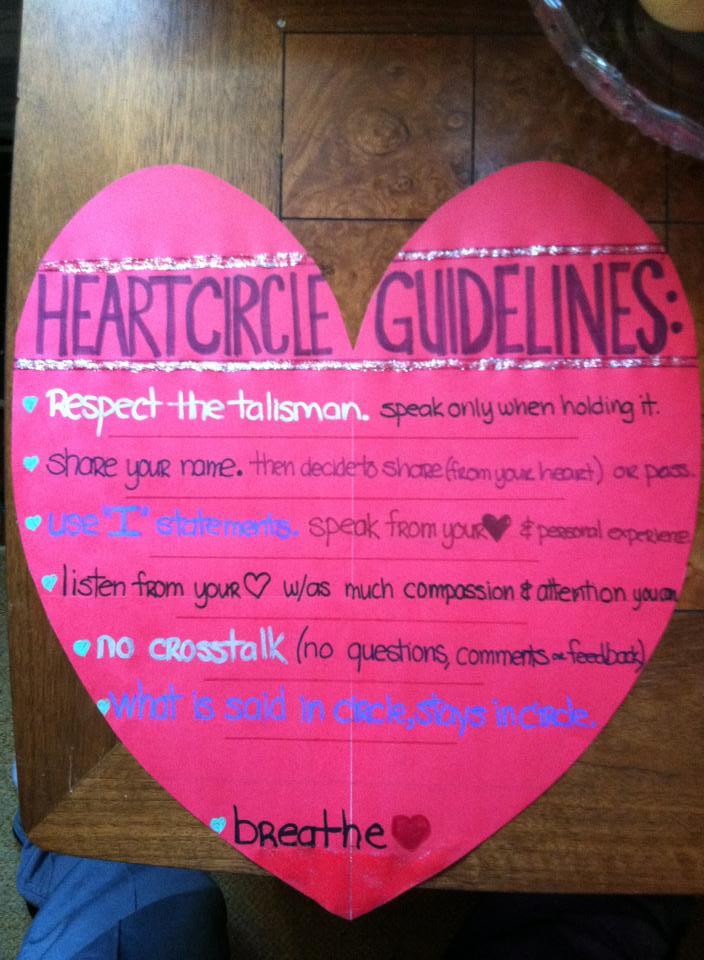 HEARTCIRCLE GUIDELINES:
Respect the talisman. speak only when holding it.
share your name. then decide to share (from your heart) or pass.
use "I" statements. speak from your ♥ & personal experience
listen from your ♡ w/as much compassion & attention you can
no crosstalk (no questions, comments or feedback)
what is said in circle, stays in circle.
breathe ♥